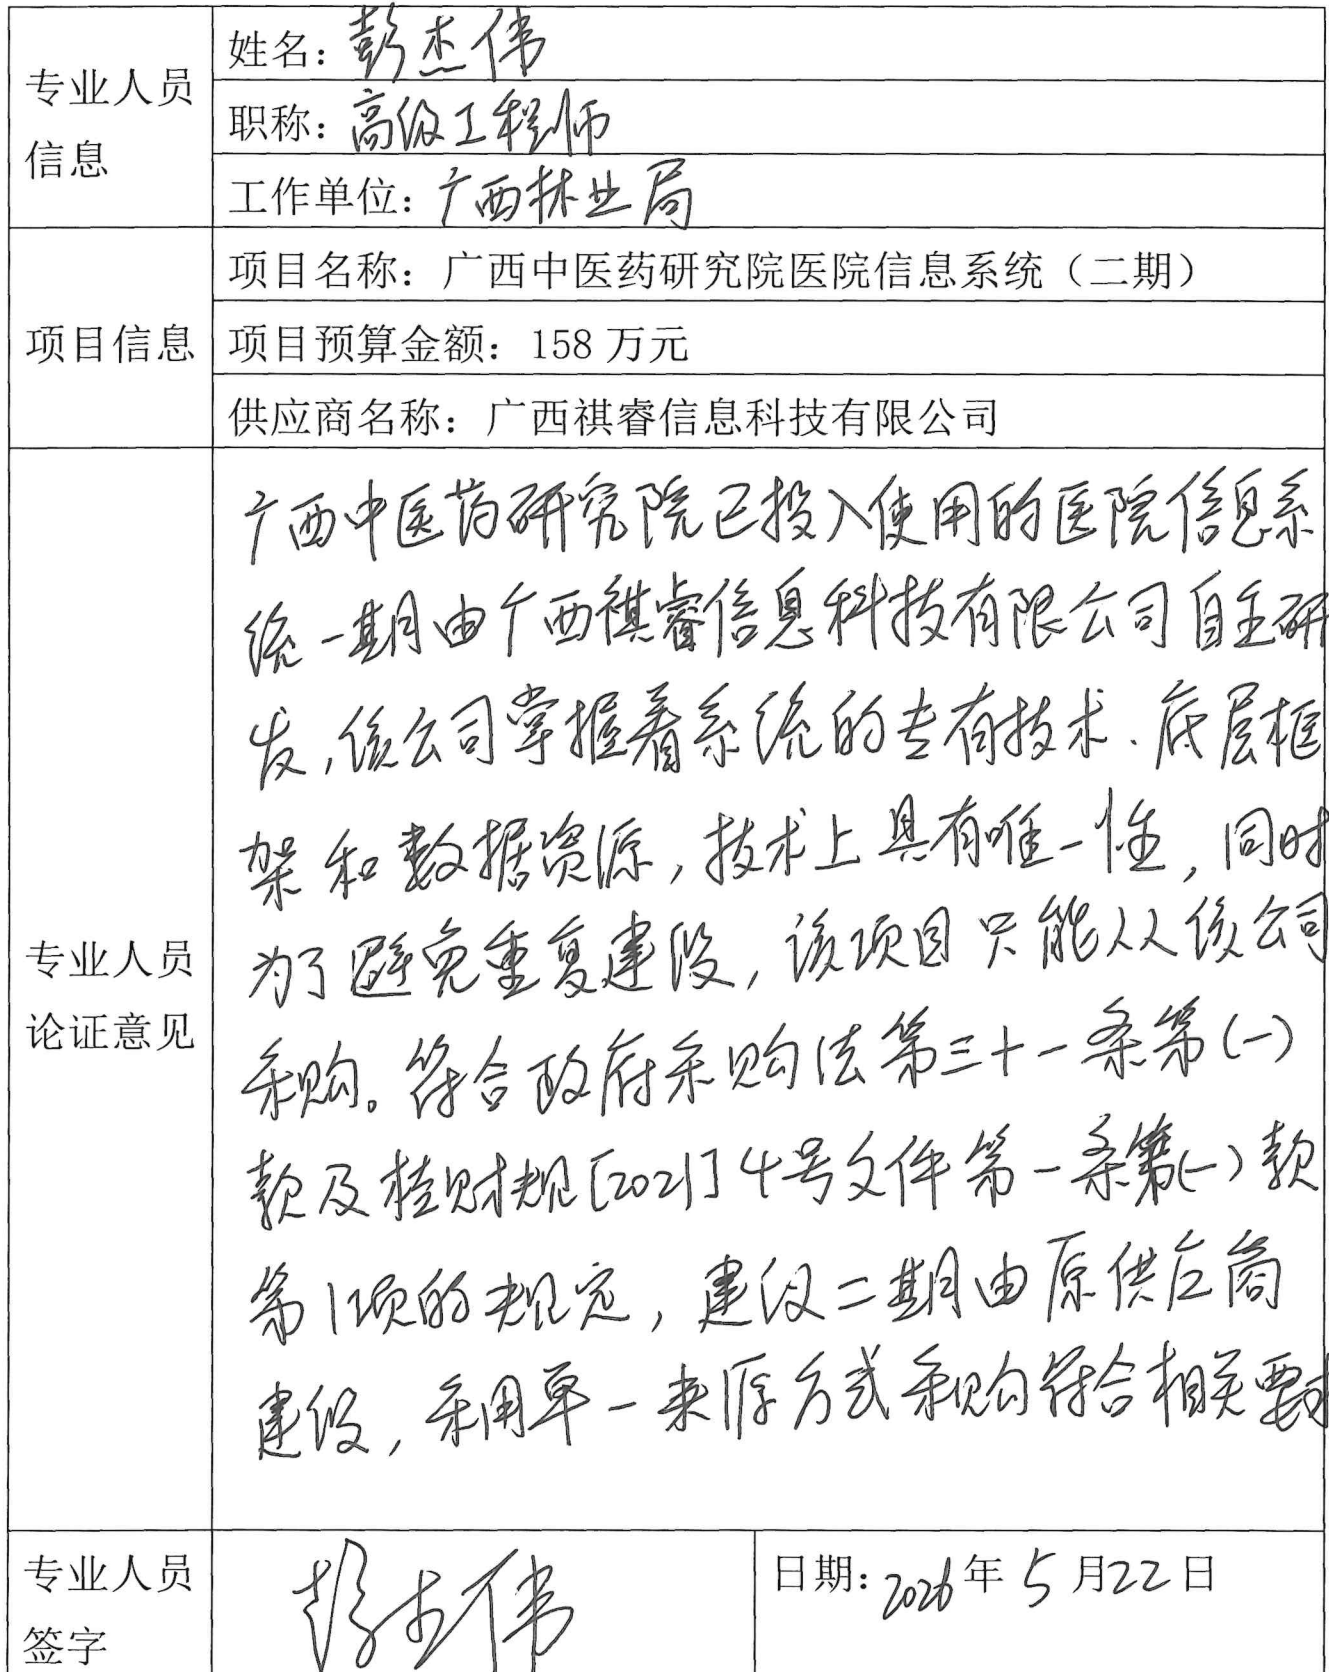 专业人员
信息
姓名：彭杰伟
职称：高级工程师
工作单位：广西林业局
项目信息
项目名称：广西中医药研究院医院信息系统（二期）
项目预算金额：158 万元
供应商名称：广西祺睿信息科技有限公司
专业人员
论证意见
广西中医药研究院已投入使用的医院信息系
统一期由广西祺睿信息科技有限公司自主研
发，该公司掌握着系统的专有技术、底层框
架和数据资源，技术上具有唯一性，同时
为了避免重复建设，该项目只能从该公司
采购。符合政府采购法第三十一条第(一)
款及桂财规[2021]4号文件第一条第(一)款
第1项的规定，建议二期由原供应商
建设，采用单一来源方式采购符合相关要求
专业人员
签字
彭杰伟
日期：2026年5月22日